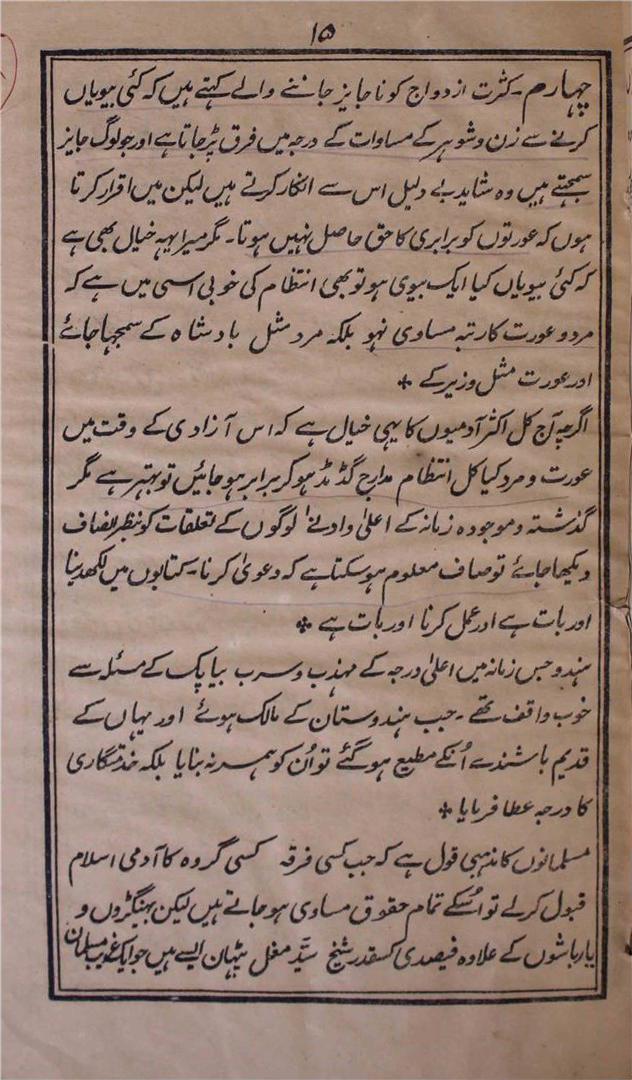 ۱۵
چہارم۔ کثرت ازدواج کو ناجایز جاننے والے کہتے ہیں کہ کئی بیویاں
کرنے سے زن و شوہر کے مساوات کے درجہ میں فرق پڑجاتا ہے اور جو لوگ جایز
سمجہتے ہیں وہ شاید بے دلیل اس سے انکار کرتے ہیں لیکن میں اقرار کرتا
ہوں کہ عورتوں کو برابری کا حق حاصل نہیں ہوتا۔ مگر میرا یہہ خیال بھی ہے
کہ کئی بیویاں کیا ایک بیوی ہو تو بھی انتظام کی خوبی اسی میں ہے کہ
مرد و عورت کا رتبہ مساوی نہو بلکہ مرد مثل بادشاہ کے سمجہا جائے
اور عورت مثل وزیر کے ٭
اگرچہ آج کل اکثر آدمیوں کا یہی خیال ہے کہ اس آزادی کے وقت میں
عورت و مرد کیا کل انتظام مدارج گڈمڈ ہو کر برابر ہو جائیں تو بہتر ہے مگر
گذشتہ و موجودہ زمانہ کے اعلیٰ و ادنےٰ لوگوں کے تعلقات کو نظر انصاف
دیکھا جائے تو صاف معلوم ہو سکتا ہے کہ دعویٰ کرنا۔ کتابوں میں لکھدینا
اور بات ہے اور عمل کرنا اور بات ہے ٭
ہندو جس زمانہ میں اعلیٰ درجہ کے مہذب و سرب بیاپک کے مسئلہ سے
خوب واقف تھے۔ جب ہندوستان کے مالک ہوئے اور یہاں کے
قدیم باشندے اُنکے مطیع ہو گئے تو اُن کو ہمسر نہ بنایا بلکہ خدمتگاری
کا درجہ عطا فرمایا ٭
مسلمانوں کا مذہبی قول ہے کہ جب کسی فرقہ کسی گروہ کا آدمی اسلام
قبول کرلے تو اُسکے تمام حقوق مساوی ہو جاتے ہیں لیکن بہنگڑوں و
یارباشوں کے علاوہ فیصدی کسقدر شیخ سیّد مغل پٹہان ایسے ہیں جو ایک غریب مسلمان